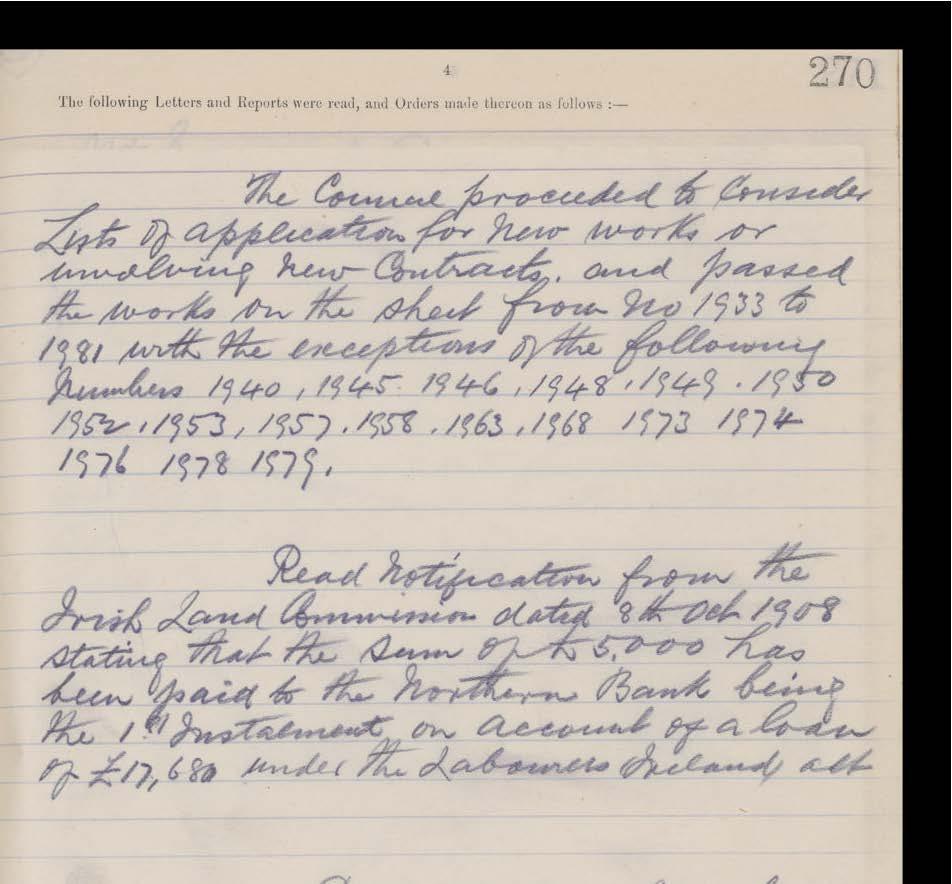 4
270
The following Letters and Reports were read, and Orders made thereon as follows :—
The Council proceeded to Consider
Lists of application for New works or
involving New Contracts. and passed
the works on the sheet from No 1933 to
1981 with the exceptions of the following
Numbers 1940, 1945. 1946, 1948, 1949. 1950
1952, 1953, 1957. 1958. 1963, 1968 1973 1974
1976 1978 1979.
Read Notification from the
Irish Land Commission dated 8th Oct 1908
stating that the sum of £5,000 has
been paid to the Northern Bank being
the 1st Instalment on account of a loan
of £17,680 under the Labourers Ireland act